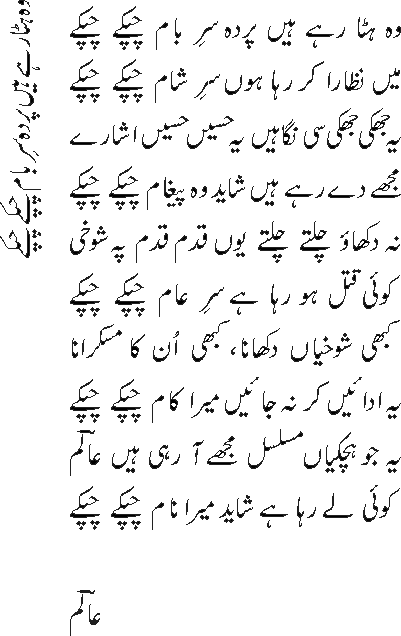 وہ ہٹا رہے ہیں پردہ سرِ بام چپکے چپکے
وہ ہٹا رہے ہیں پردہ سرِ بام چپکے چپکے
میں نظارا کر رہا ہوں سرِ شام چپکے چپکے
یہ جھکی جھکی سی نگاہیں یہ حسیں حسیں اشارے
مجھے دے رہے ہیں شاید وہ پیغام چپکے چپکے
نہ دکھاؤ چلتے چلتے یوں قدم قدم پہ شوخی
کوئی قتل ہو رہا ہے سرِ عام چپکے چپکے
کبھی شوخیاں دکھانا، کبھی اُن کا مسکرانا
یہ ادائیں کر نہ جائیں میرا کام چپکے چپکے
یہ جو ہچکیاں مسلسل مجھے آ رہی ہیں عالم
کوئی لے رہا ہے شاید میرا نام چپکے چپکے
عالم